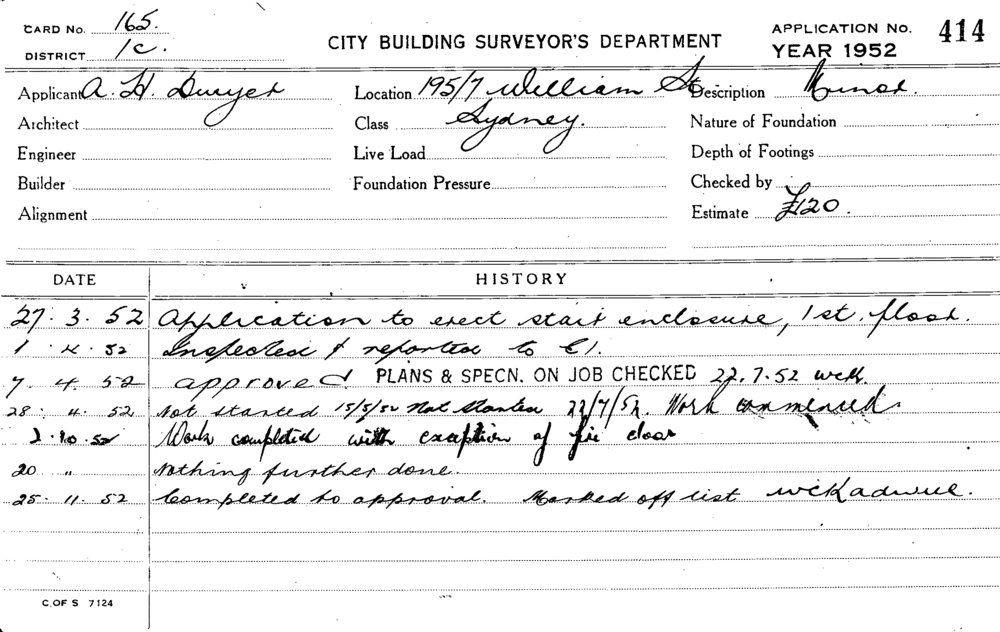 CARD No. 165.
DISTRICT 1C.
CITY BUILDING SURVEYOR'S DEPARTMENT
APPLICATION No. 414
YEAR 1952
Applicant A. H. Dwyer Location 195/7 William St Description Minor.
Architect Class Sydney. Nature of Foundation
Engineer Live Load Depth of Footings
Builder Foundation Pressure Checked by
Alignment Estimate £120.
DATE HISTORY
27.3.52 Application to erect stair enclosure, 1st. floor.
1.4.52 Inspected & reported to C1.
7.4.52 approved. PLANS & SPECN. ON JOB CHECKED 22.7.52 wck.
28.4.52 Not started 15/5/52 Not Started 22/7/52. Work commenced.
2.10.52 Work completed with exception of fire door
20 " Nothing further done.
25.11.52 Completed to approval. Marked off list
C. OF S 7124